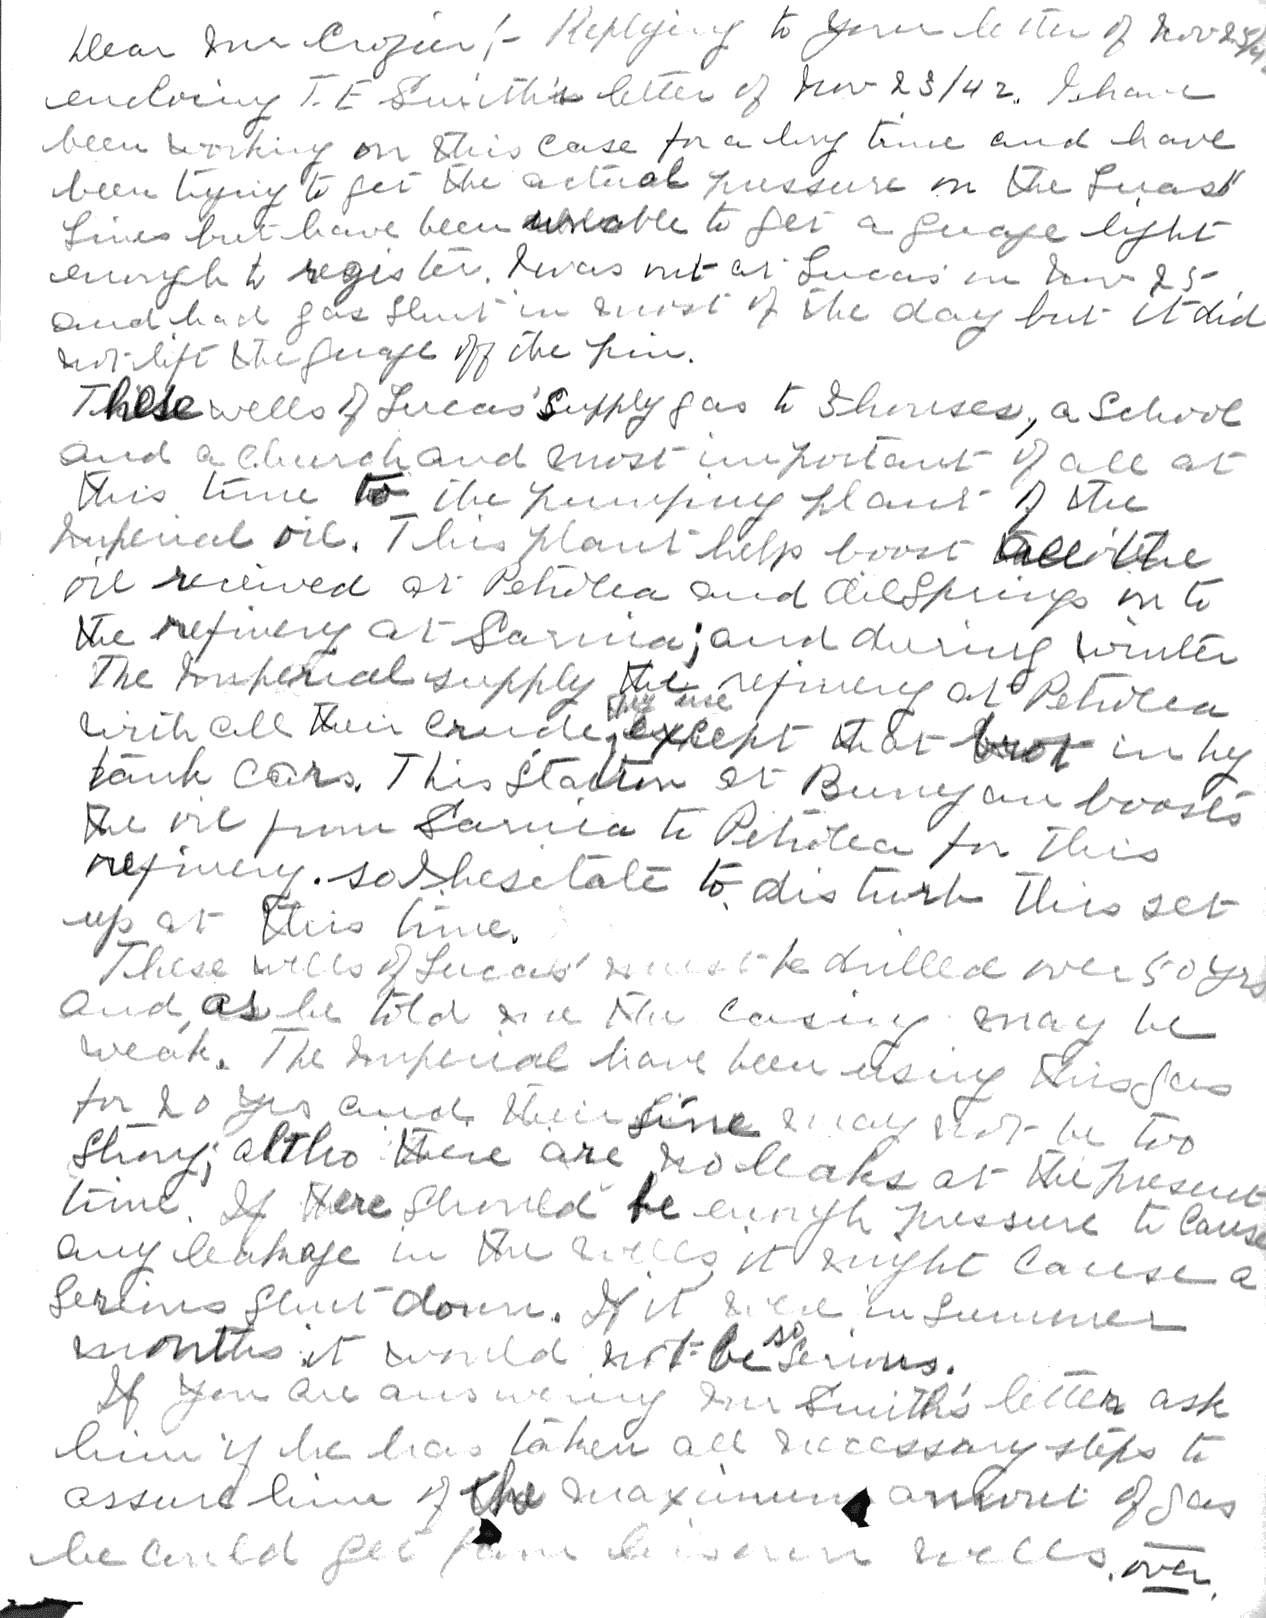 Dear Mr Crozier,:- Replying to your letter of Nov 25/42
enclosing T. E Smith's letter of Nov 23/42. I have
been working on this case for a long time and have
been trying to get the actual pressure on the Lucas'
Lines but have been unable to get a guage light
enough to register. I was out at Lucas' on Nov 25
and had gas shut in most of the day but it did
not lift the guage off the pin.
These wells of Lucas' supply gas to 3 houses, a School
and a church and most important of all at
this time to the pumping plant of the
Imperial oil. This plant help boost all the
oil recieved at Petrolea and Oil Springs on to
the refinery at Sarnia; and during winter
The Imperial supply the refinery at Petrolea
with all their crude, they use except that brot in by
tank cars. This Station at Bunyan boosts
the oil from Sarnia to Petrolea for this
refinery. so I hesitate to disturb this set
up at this time.
These wells of Lucas' must be drilled over 50 yrs
and, as he told me the casing may be
weak. The Imperial have been using this gas
for 20 yrs and their line may not be too
Strong; altho there are no leaks at the present
time. If there should be enough pressure to cause
any leakage in the wells it might cause a
Serious Shut down. If it were in Summer
months it would not be so Serious.
If you are answering Mr Smith's letter ask
him if he has taken all necessary steps to
assure him of the maximum amount of gas
he could get from his own wells. over.